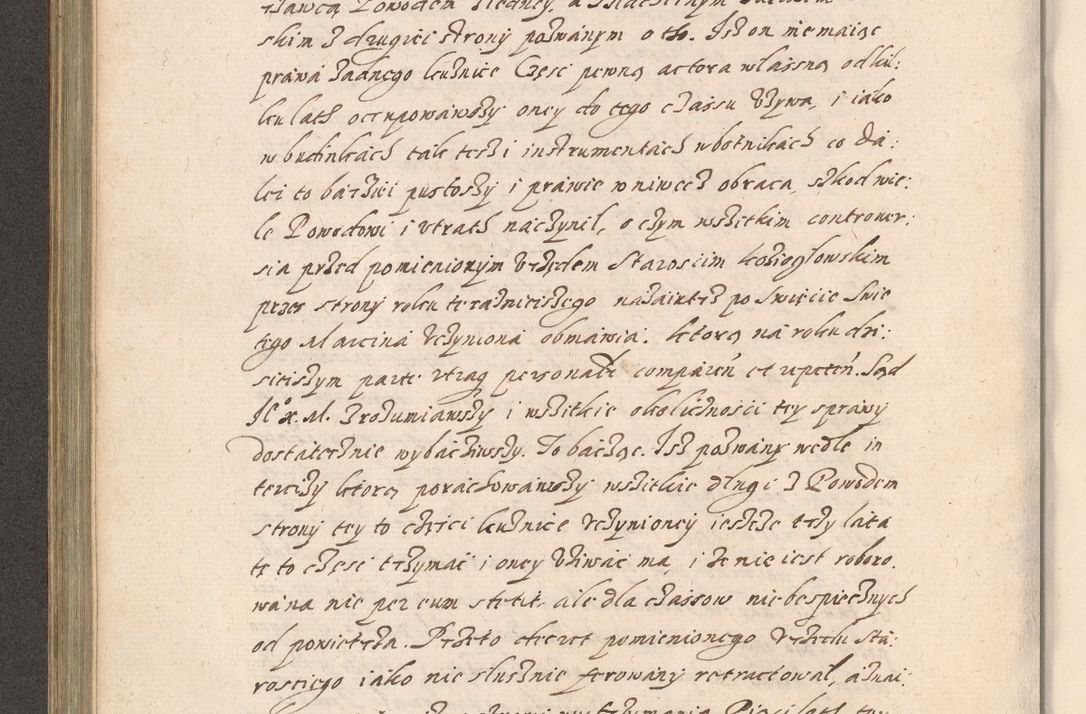 skim z drugiei strony pozwanym o to. Isz on nie maiąc
prawa żadnego kuźnice Część pewną actora własną od kil:
ku lath occupowawszy oney do tego czassu używa, i iako
w budinkach tak tesz i instrumentach robotnikach co dá:
lei to barziei pustoszy i prawie w niwecz obraca, szkod wie:
le Powodowi i utrath naczynił, o czym wszitkim controver:
sia przed pomienionym Urzędem Staroscim Koziogłowskim
przes strony roku teraznieiszego nazaiutrz po święcie Swię
tego Marcina Uczyniona obmawia. Ktorą na roku dzi:
sieiszym parte utraq personalr comparen et repeten. Sąd
JE° X. M. Zrozumiawszy i wszitkie okoliczności tey sprawy
dostatecznie wybaczywszy. To bacząc. Isz pozwany wedle in
tercizy ktorą porachowawszy wszitkie długi z Powodem
strony tey to części kuźnice Uczynioney ieszcze trzy lata
tę to część trzymać i oney Uźiwać ma, i że nie iest roboro.
wana nie per eum stetit, ale dla czassow niebespiecznych
od powietrza. Przeto decret pomienionego Urzędu Sta:
rosciego iako nie słusznie ferowany retractował, a znai: